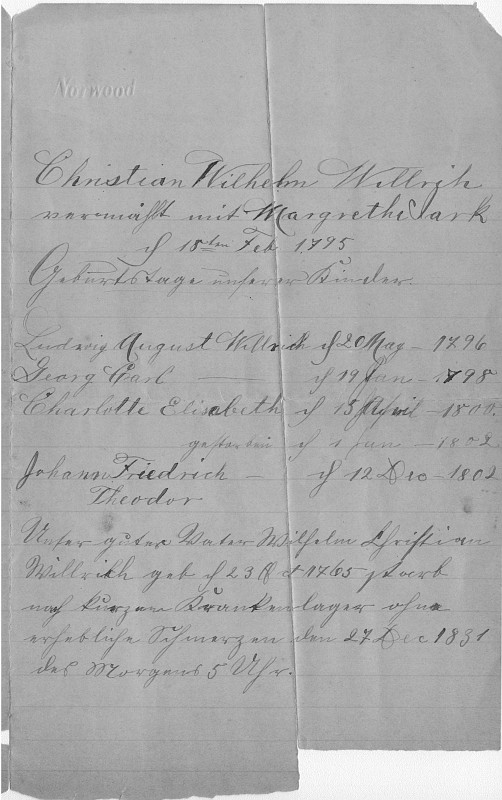 Norwood
Christian Wilhelm Willrich
vermählt mit Margrethe Sark
d 18ten Feb 1795
Geburtstage unserer Kinder.
Ludwig August Willrich d 2 May – 1796
Georg Carl — d 19 Jan – 1798
Charlotte Elisabeth d 15 April – 1800.
gestorben d 1 Jan – 1802
Johann Friedrich – d 12 Dec – 1802
Theodor
Unser guter Vater Wilhelm Christian
Willrich geb d 23 Oct 1765 starb
nach kurzem Krankenlager ohne
erhebliche Schmerzen den 27 Dec 1831
des Morgens 5 Uhr.